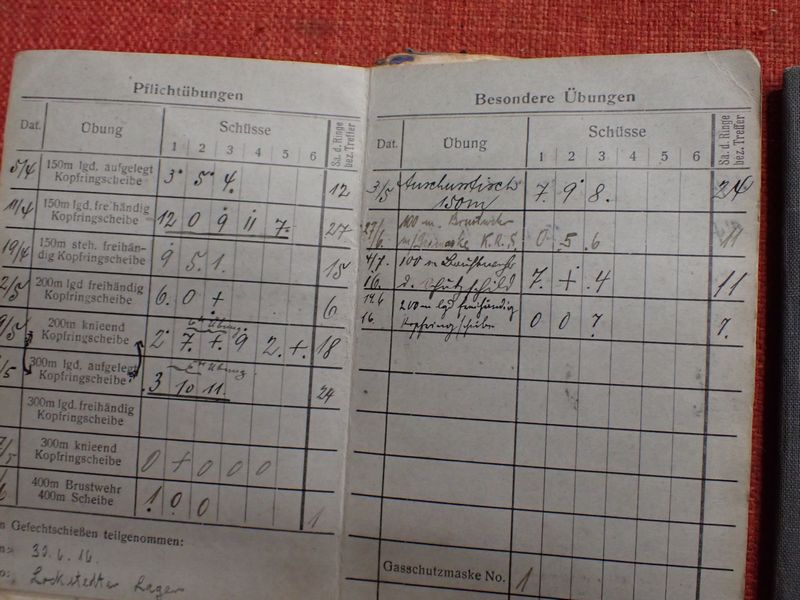 Pflichtübungen
Dat. Übung Schüsse Sa. d. Ringe bez. Treffer
1 2 3 4 5 6
5/4 150m lgd. aufgelegt Kopfringscheibe 3 5 4. 12
11/4 150m lgd. freihändig Kopfringscheibe 12 0 9 11 7. 27
19/4 150m steh. freihän-
dig Kopfringscheibe 9 5 1. 15
2/5 200m lgd freihändig Kopfringscheibe 6. 0 + 6
200m knieend Kopfringscheibe 2 7. + 9 2. +. 18
Übung
300m lgd. aufgelegt Kopfringscheibe 3 10 11. 24
300m lgd. freihändig Kopfringscheibe
300m knieend Kopfringscheibe 0 + 0 0 0
400m Brustwehr
400m Scheibe 1. 0 0 1
n Gefechtschießen teilgenommen:
30.6.16.
Lockstedter Lager
Besondere Übungen
Dat. Übung Schüsse Sa. d. Ringe bez. Treffer
1 2 3 4 5 6
3/5 Anschusstisch 150m 7. 9 8. 24
27/6. 100 m. Brustwehr
m/Gasmaske K.R.S. 0 5 6 11
4/7. 16. 100 m Brustwehr
d. Schutzschild 7. + 4 11
16. 200 m lgd freihändig
Kopfringscheibe 0 0 7 7.
Gasschutzmaske No. 1